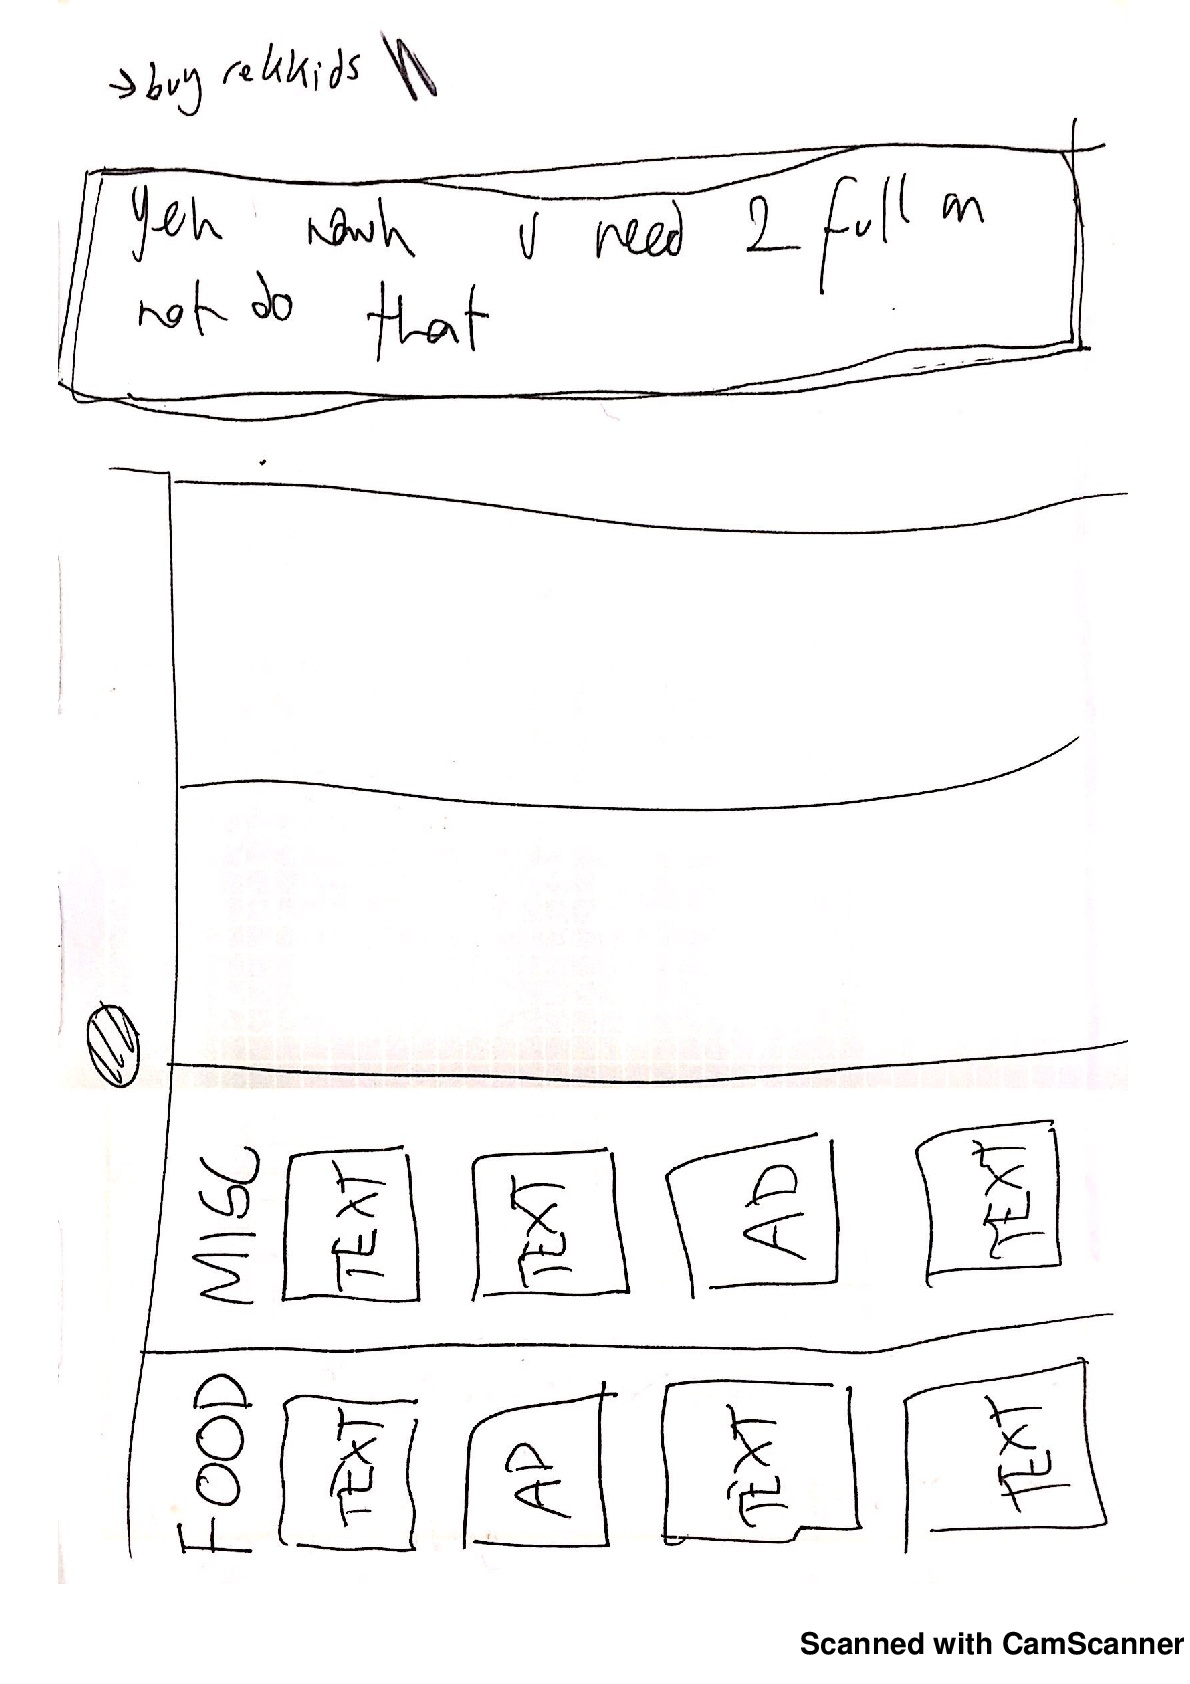 → buy rekkids
yeh nawh u need 2 full on
not do that
MISC
TEXT
TEXT
AD
TEXT
FOOD
TEXT
AD
TEXT
TEXT
Scanned with CamScanner